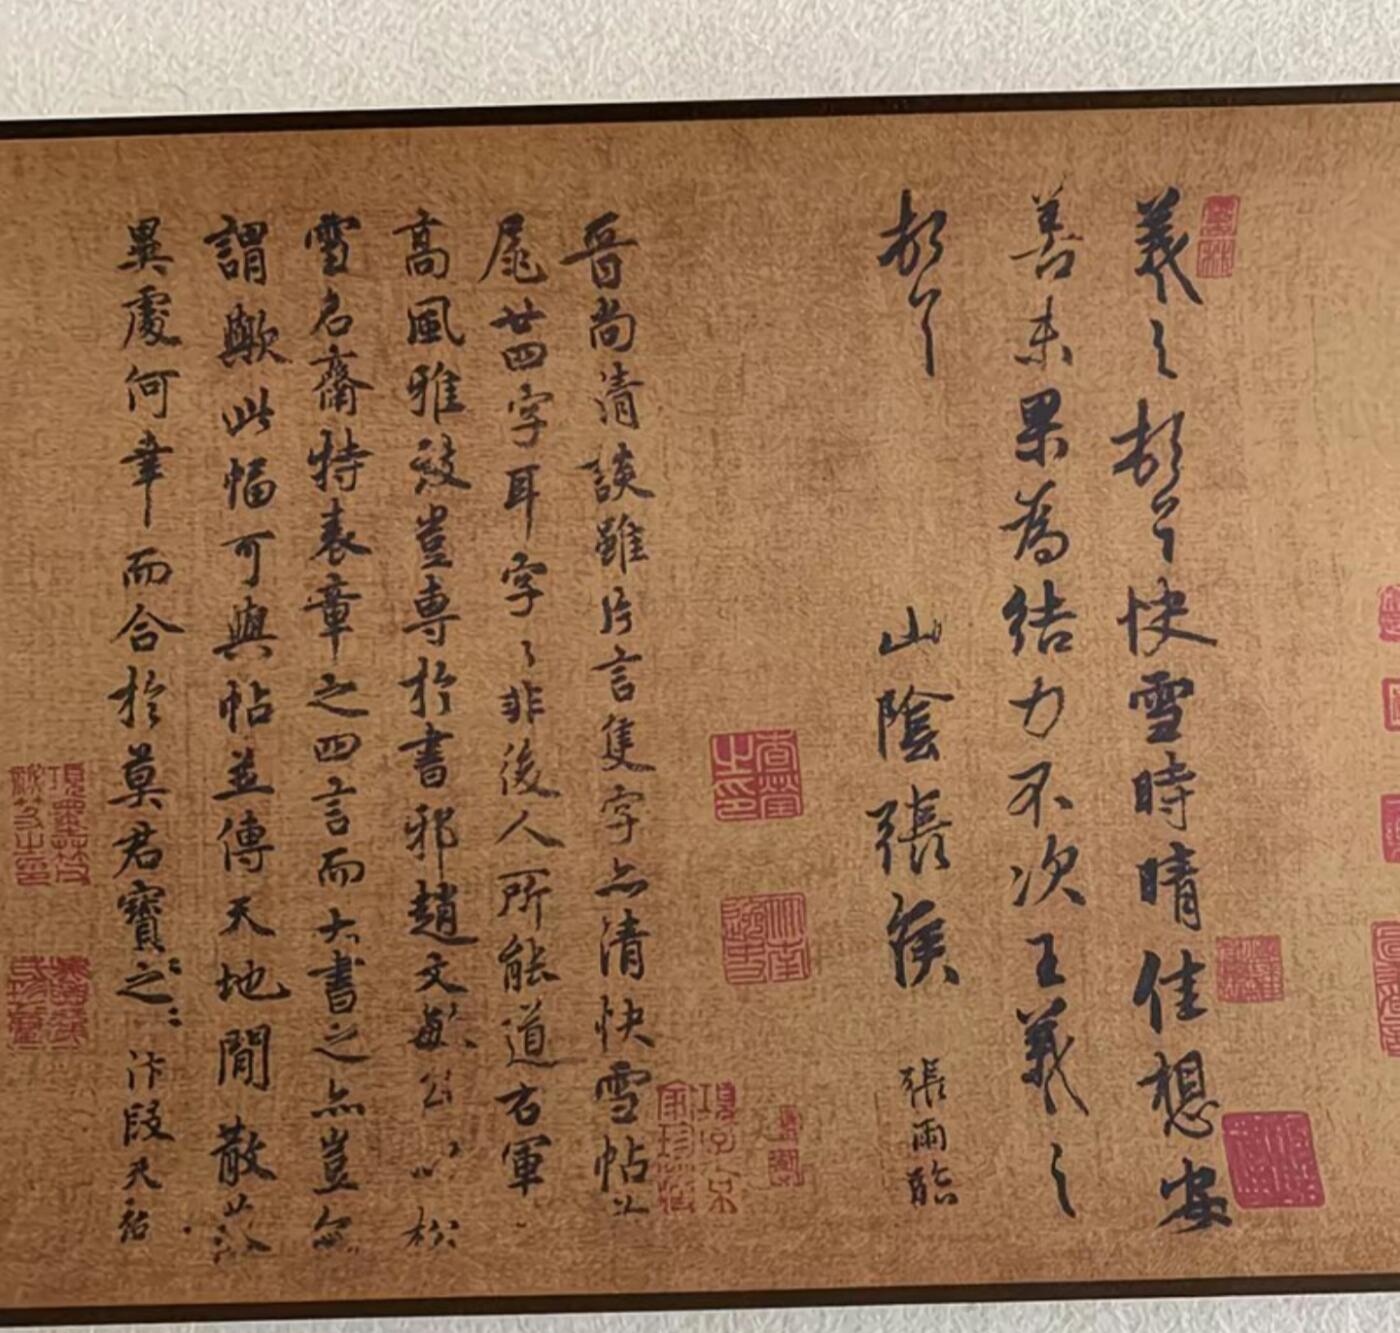 羲之頓首快雪時晴佳想安
善未果為結力不次王羲之
頓首
山陰張侯 張雨臨
晉尚清談雖片言隻字亦清快雪帖
尾廿四字耳字〻非後人所能道右軍
高風雅致豈專於書邪趙文敏公以松
雪名齋特表章之四言而大書之亦豈無
謂歟此幅可與帖並傳天地間散落
異處何幸而合於莫君寶〻之〻汴段天祐